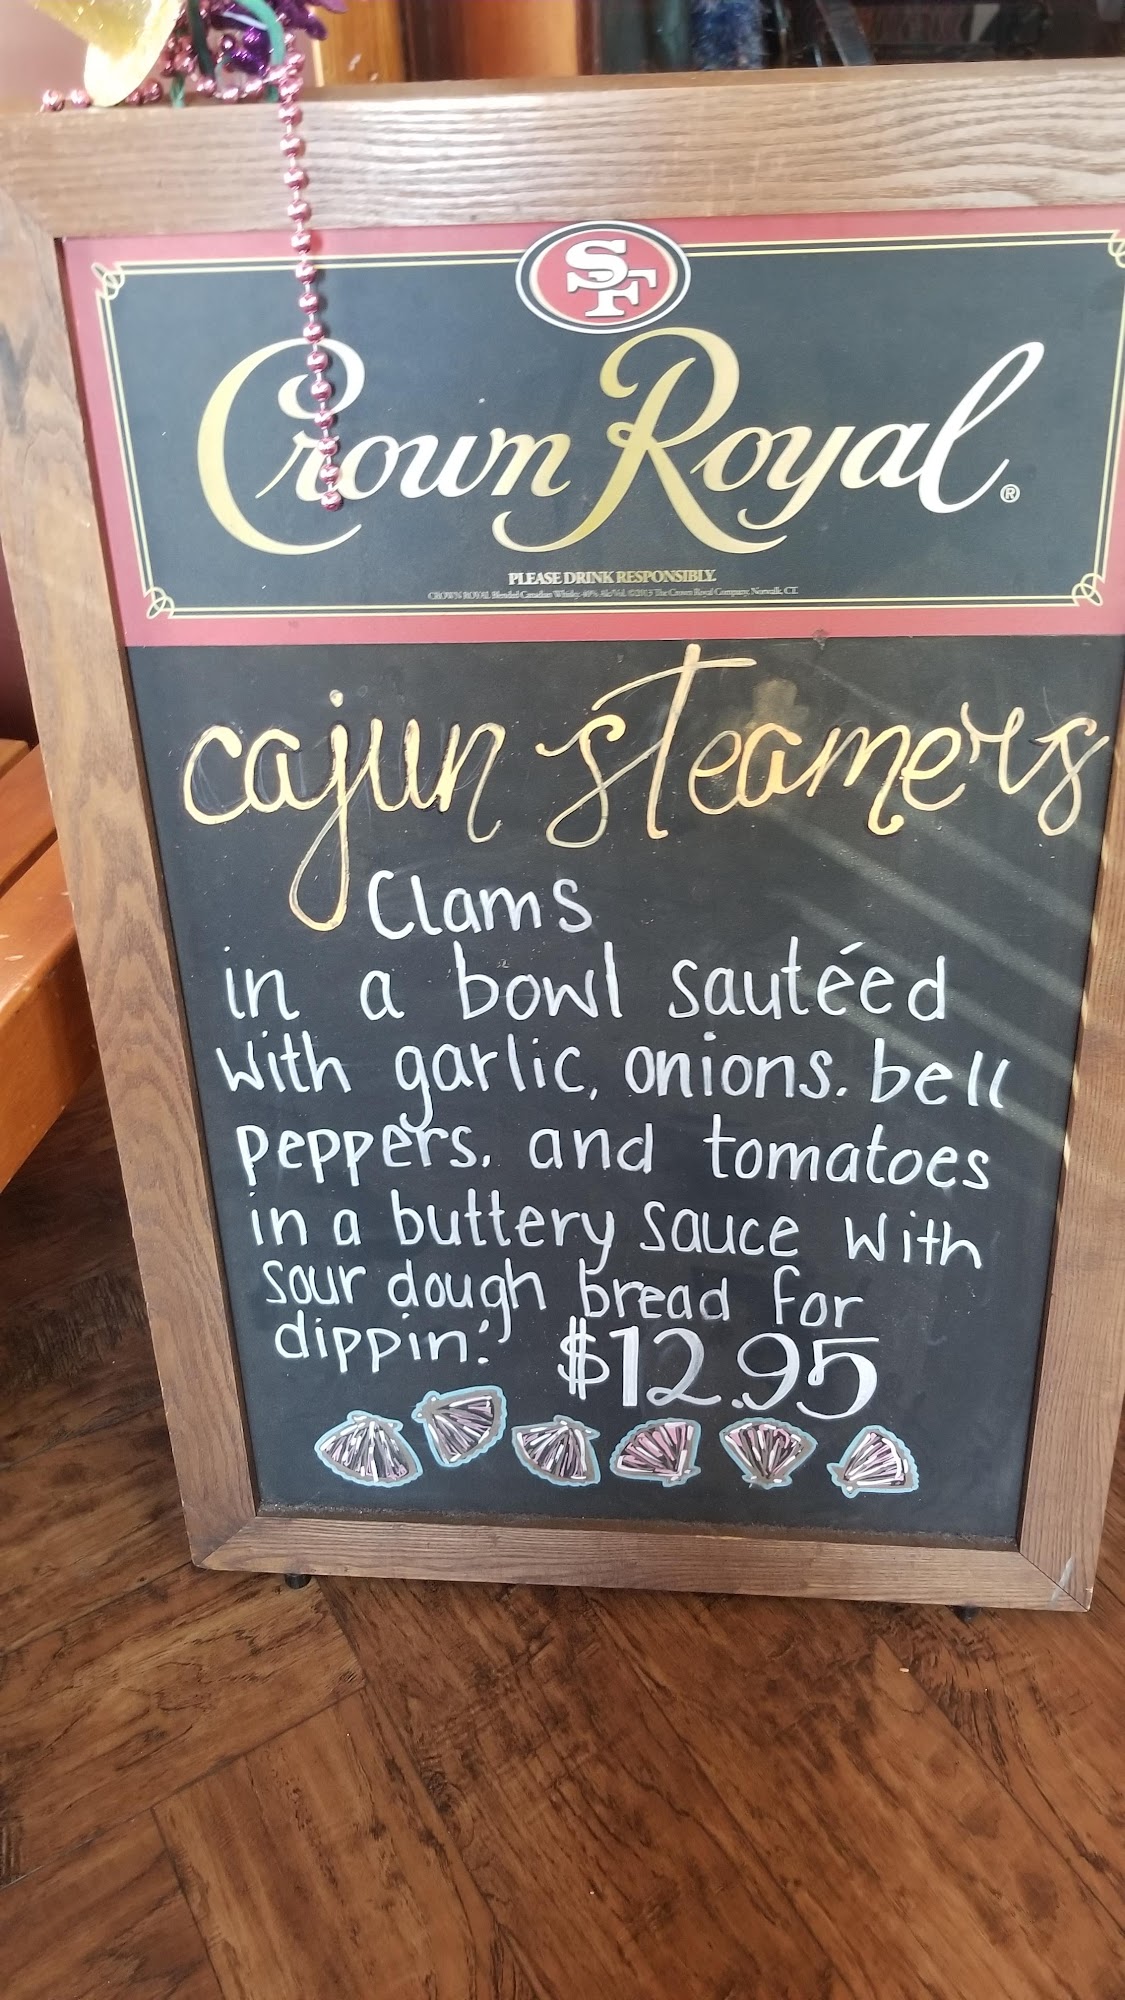 SF
Crown Royal®
PLEASE DRINK RESPONSIBLY.
CROWN ROYAL Blended Canadian Whisky. 40% Alc/Vol. ©2013 The Crown Royal Company, Norwalk, CT.
cajun steamers
Clams
in a bowl sautéed
with garlic, onions, bell
peppers, and tomatoes
in a buttery sauce with
sour dough bread for
dippin.' $12.95